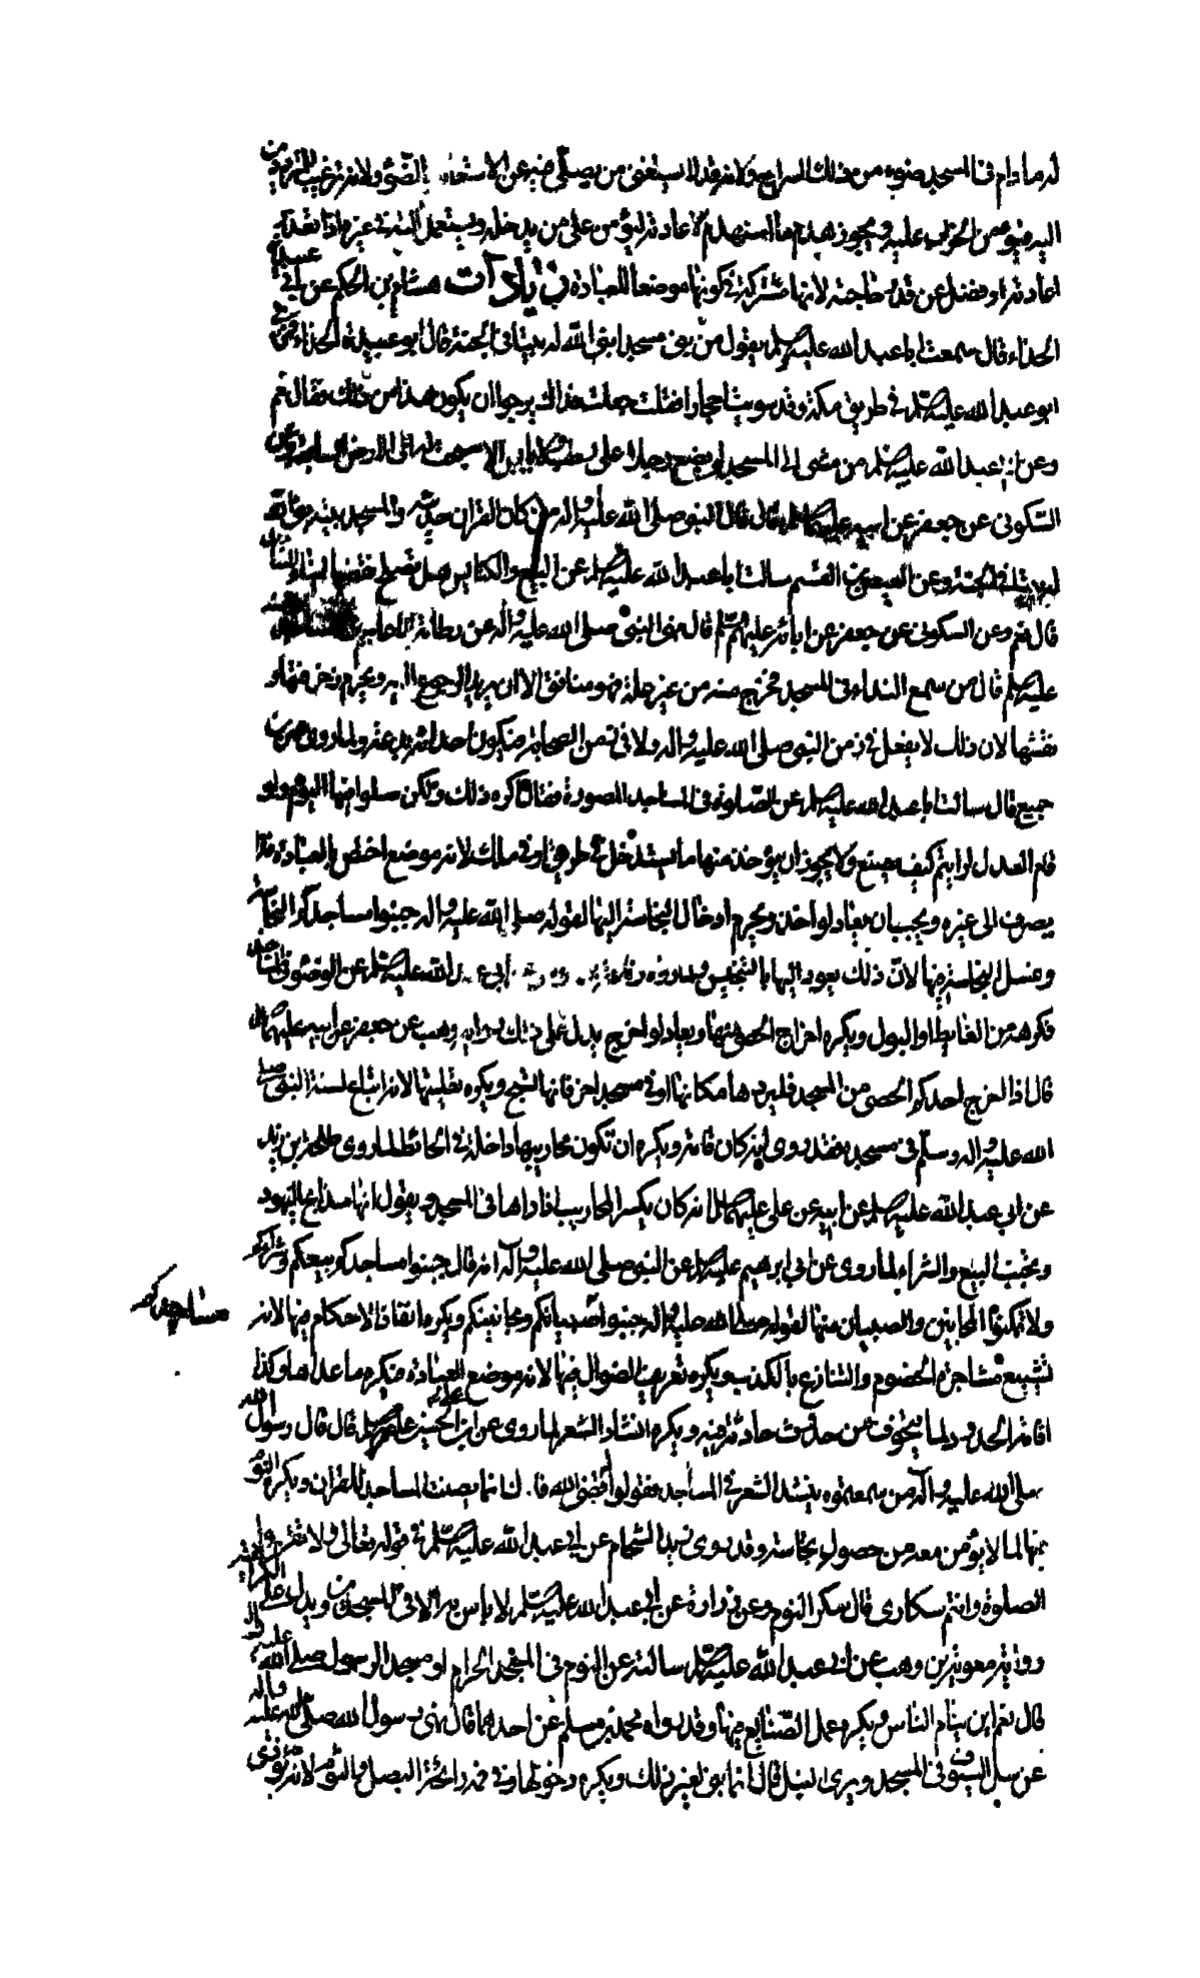 له ما دام في المسجد ضوء من ذلك السراج ولانه قد لا يستغني من يصلي فيه عن الاستضاءة الضوء ولانه ترغيب للتردد
اليه فيؤمن الخراب عليه ويجوز هدم ما استهدم لاعادته ليؤمن على من يدخله ويستعمل آلته في غيره اذا تعذر
اعادته او فضل عن قدر حاجته لانها مشتركة في كونها موضعا للعبادة زيادات هشام بن الحكم عن ابي عبيدة
الحذاء قال سمعت ابا عبد الله عليه السلم يقول من بنى مسجدا بنى الله له بيتا في الجنة قال ابو عبيدة الحذاء فمر بي
ابو عبد الله عليه السلم في طريق مكة وقد سويت احجارا فقلت جعلت فداك يرجوا ان يكون هذا من ذلك فقال نعم
وعن ابي عبد الله عليه السلم من مشى الى المسجد لم يضع رجلا على رطب ولا يابس الا سبحت له الى الارض السابعة وعن
السكوني عن جعفر عن ابيه عليهما السلم قال قال النبي صلى الله عليه واله من كان القران حديثه والمسجد بيته بنى الله
له بيتا في الجنة وعن العيص بن القسم سالت ابا عبد الله عليه السلم عن البيع والكنايس هل يصلح نقضها لبناء المساجد
قال نعم وعن السكوني عن جعفر عن ابائه عليهم السلم قال نهى النبي صلى الله عليه واله عن رطانة الاعاجم
عليه السلم قال من سمع النداء في المسجد فخرج منه من غير علة فهو منافق الا ان يريد الرجوع اليه ويحرم زخرفتها و
نقشها لان ذلك لا يفعل في زمن النبي صلى الله عليه واله ولا في زمن الصحابة فيكون احداثه بدعة ولما روى عمرو بن
جميع قال سالت ابا عبد الله عليه السلم عن الصلوة في المساجد المصورة فقال اكره ذلك ولكن صلوا فيها اليوم ولو
قام العدل لرايتم كيف يصنع ولا يجوز ان يؤخذ منها ما يستدخل في طريق او في ملك لانه موضع اختص بالعبادة فلا
يصرف الى غيره ويجب ان يعاد لو اخذ ويحرم ادخال النجاسة اليها لقوله صلى الله عليه واله جنبوا مساجدكم النجاسة
وغسل النجاسة فيها لان ذلك يعود اليها بالتنجيس ولما رواه رفاعة ابي عبد الله عليه السلم عن الوضوء في المساجد
فكرهه من الغايط والبول ويكره اخراج الحصى منها ويعاد لو اخرج يدل على ذلك رواية وهب عن جعفر عن ابيه عليهما السلم
قال اذا اخرج احدكم الحصى من المسجد فليردها مكانها او في مسجد اخر فانها تسبح ويكره تعليتها لانه اتباع لسنة النبي صلى
الله عليه واله وسلم في مسجده فقد روى انه كان قامة ويكره ان تكون محاريبها داخلة في الحائط لما روى طلحة بن زيد
عن ابي عبد الله عليه السلم عن ابيه عن علي عليهما السلم انه كان يكسر المحاريب اذا راها في المسجد ويقول انها مذابح اليهود
وتجنب البيع والشراء لما روى عن ابي ابرهيم عليه السلم عن النبي صلى الله عليه واله انه قال جنبوا مساجدكم بيعكم وشراكم
ولا تمكنوا المجانين والصبيان منها لقوله صلى الله عليه واله جنبوا صبيانكم ومجانينكم ويكره انفاذ الاحكام فيها لانه مساجدكم
تشييع مشاجرة الخصوم والتنازع بالكذب ويكره تعريف الضوال فيها لانه موضع العبادة فيكره ما عداها وكذا
اقامة الحدود لما يتخوف من حدوث حادثة فيه ويكره انشاد الشعر لما روى عن ابن الحسين عليه السلم قال قال رسول الله
صلى الله عليه واله من سمعتموه ينشد الشعر في المساجد فقولوا فض الله فاك انما نصبت المساجد للقران ويكره النوم
فيها لما لا يؤمن معه من حصول نجاسة وقد روى زيد الشحام عن ابي عبد الله عليه السلم في قوله تعالى ولا تقربوا
الصلوة وانتم سكارى قال سكر النوم وعن زرارة عن ابي عبد الله عليه السلم لا باس به الا في المسجدين ويدل على الكراهية
رواية معوية بن وهب عن ابي عبد الله عليه السلم سالته عن النوم في المسجد الحرام او مسجد الرسول صلى الله عليه واله
قال نعم اين ينام الناس ويكره عمل الصنايع فيها وقد رواه محمد بن مسلم عن احدهما قال نهى رسول الله صلى الله عليه واله
عن سل السيوف في المسجد وبرى النبل قال انما بنى لغير ذلك ويكره دخولها وفي فمه رائحة البصل والثوم لانه يؤذي